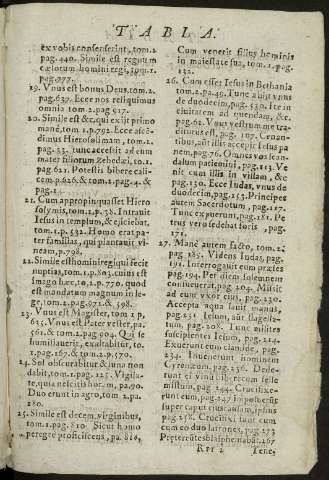 TABLA
ex vobis consenserint, tom.2.
pag.440. Simile est regnum
cælorum homini regi, tom.1.
pag.777.
19. Vnus est bonus Deus, tom.2.
pag.637. Ecce nos reliquimus
omnia tom.2.pag.
20. Simile est &c, qui exijt primo
mane, tom.1.p.792. Ecce ascē-
dimus Hierosolimam, tom.1.
pag.33. tunc accessit ad eum
mater filiorum Zebedæi, to.1.
pag.621. Potestis bibere cali-
cem p.626.& tom.2.pag.4.&
pag.1
21. Cum appropinquasset Hiero
solymis, tom.1.p.38. Intravit
Iesus in templum, & ejiciebat,
tom.1.p.532. Homo erat pa-
ter familias, qui plantauit vi-
neam, p.798.
22. Simile est homini regi qui fecit
nuptias, tom.1.p.803. cuius est
imago hæc, to.2.p.770. quod
est mandatum magnum in le-
ge, tom.2.pag.671.& 598.
23. Vnus est Magister, tom 1 p,
625. Vnus est Pater vester, pa.
561.& tom.2.pag.504. Qui se
humiliauerit, exaltabitur, to.
1.pag.167.& tom.2.p.570.
24. Sol obscurabitur & luna non
dabit, tom.1.pag.123. Vigila-
te, quia nescitis hor. m, pa.90.
Duo erunt in agro, tom.2.pa.
280.
25. Simile est decem virginibus,
tom.1.pag.810. Sicut homo
peregre proficiscens, pa.816.
Cum venerit filius hominis
in maiestate sua, tom.1.pag.
132.
26. Cum esset Iesus in Bethania
tom.2.pa.49. Tunc abijt vnus
de duodecim, pag.530. Ite in
ciuitatem ad quendam, &c.
pag.62. Vnus vestrum me tra-
diturus est, pag.107. Cœnan-
tibus, aut illis accepit Iesus pa
nem, pag.76. Omnes vos scan-
dalum patiemini, pag.113. Ve-
nit cum illis in villam, &c
pag.130. Ecce Iudas, vnus de
duodecim, pag.153. Principes
autem Sacerdotum, pag.173.
Tunc expuerunt, pag.181. Pe
trus vero sedebat foris,
pag.171.
27. Mane autem facto, tom.2.
pag.185. Videns Iudas, pag.
191. Interrogauit eum præses
pag.194. Per diem solemnem
consueuerat, pag.204. Misit
ad eum vxor eius, pag.213.
Accepta aqua lauit manus,
pag.231. Iesum, aut flagella-
tum, pag.208. Tunc milites
suscipientes Iesum, pag.214.
Exuerunt eum clamide, pag.
234. Inuenerunt hominem
Cyrenæum, pag.236. Dede-
runt ei vinū bibere cum felle
mistum, pag.244. Crucifixe-
runt eum, pag.247. imposuerūt
super caput eius causam, ipsius
pag.256. Crucifixi sunt cum
eo duo latrones, pag.273.
Prætereūtes blasphemabāt.267
Rrr 2
Tene-